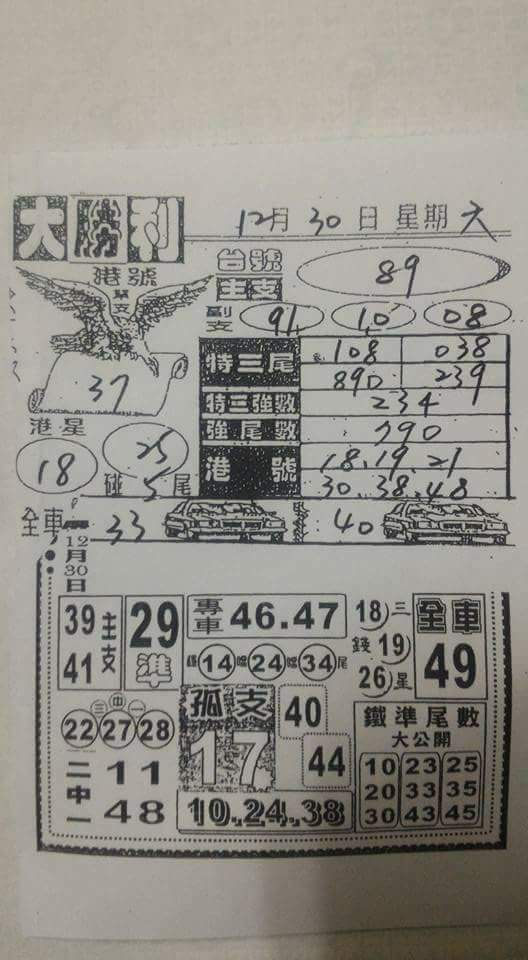 大勝利 12月30日 星期六
港號 單支 37
台號 主支 89
副支 91 10 08
特三尾 108 038
890 239
特三強數 234
強尾數 790
港號 18.19.21
30.38.48
港星 18 25
碰 5尾
全車 33 40
12月30日
39 41 主支
29 準
專車 46.47
14 24 34 尾
18 19 26 三星
全車 49
三中一
22 27 28
孤支 17
40
44
二中一 11 48
10.24.38
鐵準尾數
大公開
10 23 25
20 33 35
30 43 45